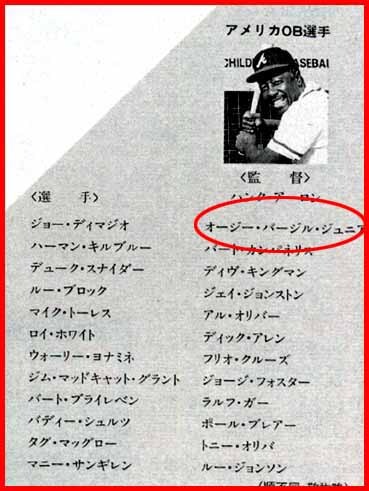 アメリカOB選手
CHILD BASEBAL
〈監督〉
ハンク・アーロン
〈選手〉
ジョー・ディマジオ
ハーマン・キルブルー
デューク・スナイダー
ルー・ブロック
マイク・トーレス
ロイ・ホワイト
ウォーリー・ヨナミネ
ジム・マッドキャット・グラント
バート・ブライレベン
バディー・シュルツ
タグ・マッグロー
マニー・サンギレン
オージー・バージル・ジュニア
バート・カンパネリス
ディヴ・キングマン
ジェイ・ジョンストン
アル・オリバー
ディック・アレン
フリオ・クルーズ
ジョージ・フォスター
ラルフ・ガー
ポール・ブレアー
トニー・オリバ
ルー・ジョンソン